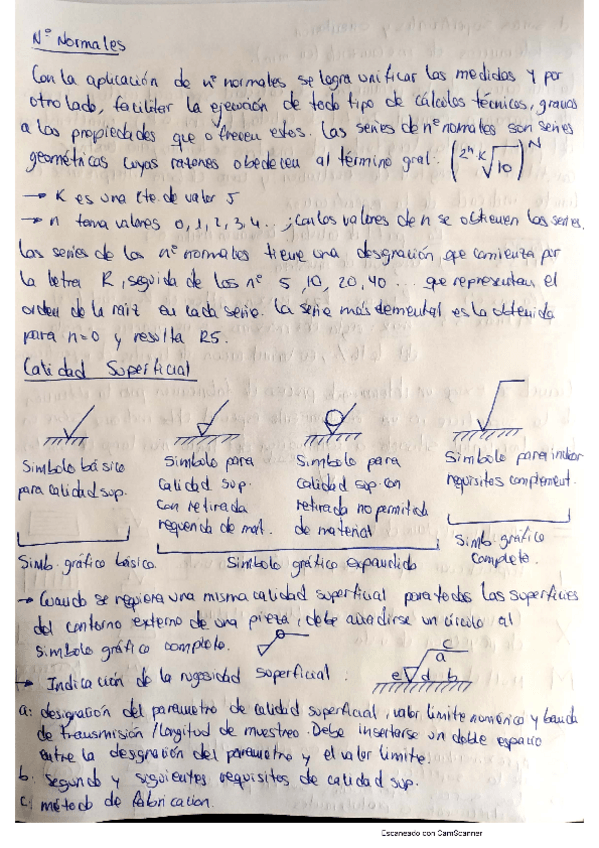 Nº Normales
Con la aplicación de nº normales se logra unificar las medidas y por
otro lado, facilitar la ejecución de todo tipo de cálculos técnicos, gracias
a las propiedades que ofrecen estos. Las series de nº normales son series
geométricas cuyas razones obedecen al término gral: (2ⁿ·K√10)ᴺ
→ K es una cte. de valor 5
→ n toma valores 0, 1, 2, 3, 4... ; con los valores de n se obtienen las series.
Las series de los nº normales tiene una designación que comienza por
la letra R, seguida de los nº 5, 10, 20, 40... que representan el
orden de la raiz en cada serie. La serie más elemental es la obtenida
para n=0 y resulta R5.
Calidad Superficial
Simbolo básico
para calidad sup.
Simbolo para
calidad sup.
con retirada
requerida de mat.
Simbolo para
calidad sup. con
retirada no permitida
de material
Simbolo para indicar
requisitos complement.
Simb. gráfico básico.
Simbolo gráfico expandido
Simb. gráfico
completo.
→ Cuando se requiera una misma calidad superficial para todas las superficies
del contorno externo de una pieza, debe añadirse un círculo al
simbolo gráfico completo.
→ Indicación de la rugosidad superficial:
c
a
e d b
a: designación del parametro de calidad superficial, valor limite numérico y banda
de transmisión / longitud de muestreo. Debe insertarse un doble espacio
entre la designación del parametro y el valor limite.
b. segundo y siguientes requisitos de calidad sup.
c: método de fabricacion.
Escaneado con CamScanner